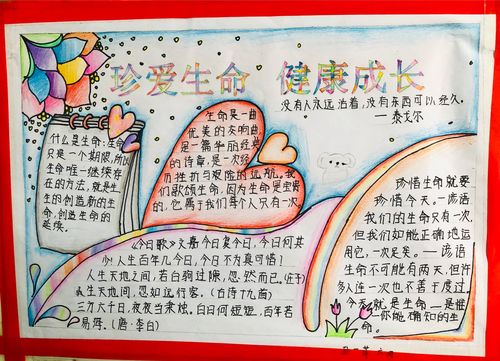 珍爱生命 健康成长
没有人永远活着,没有东西可以经久。
—泰戈尔
什么是生命:生命
只是一个期限,所以
生命唯一继续存
在的方法,就是生
生的创造新的生
命,创造生命的
延续。
生命是一曲
优美的交响曲,
是一篇华丽经典
的诗章,是一次经
历挫折与艰险的远航。我
们歌颂生命,因为生命是宝贵
的,它属于我们每个人只有一次。
珍惜生命就要
珍惜今天。—谚语
我们的生命只有一次,
但我们如能正确地运
用它,一次足矣。—谚语
生命不可能有两次,但许
多人连一次也不善于度过。
今天就是生命—是唯
一你能确知的生
命。
《今日歌》文嘉今日复今日,今日何其
少!人生百年几今日,今日不为真可惜!
人生天地之间,若白驹过隙,忽然而已。(庄子)
人生天地间,忽如远行客。(古诗十九首)
三万六千日,夜夜当秉烛。白日何短短,百年若
易满。(唐·李白)